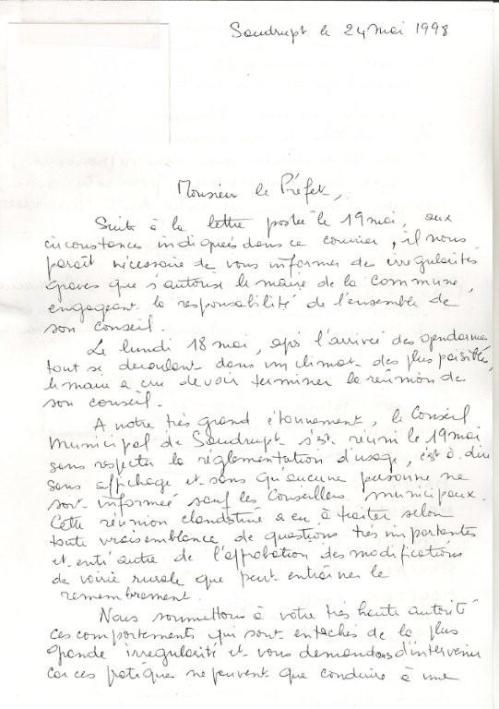 Saudrupt le 24 mai 1998
Monsieur le Préfet,
Suite à la lettre postée le 19 mai, aux
circonstances indiqués dans ce courrier, il nous
paraît nécessaire de vous informer des irrégularités
graves que s'autorise le maire de la commune,
engageant la responsabilité de l'ensemble de
son conseil.
Le lundi 18 mai, après l'arrivée des gendarmes
tout se déroulant dans un climat des plus paisibles,
le maire a cru devoir terminer la réunion de
son conseil.
A notre très grand étonnement, le Conseil
Municipal de Saudrupt s'est réuni le 19 mai
sans respecter la réglementation d'usage, c'est à dire
sans affichage et sans qu'aucune personne ne
soit informée sauf les Conseillers municipaux.
Cette réunion clandestine a eu à traiter selon
toute vraisemblance de questions très importantes
et entr'autre de l'approbation des modifications
de voirie rurale que peut entraîner le
remembrement.
Nous soumettons à votre très haute autorité
ces comportements qui sont entachés de la plus
grande irrégularité et vous demandons d'intervenir
car ces pratiques ne peuvent que conduire à une